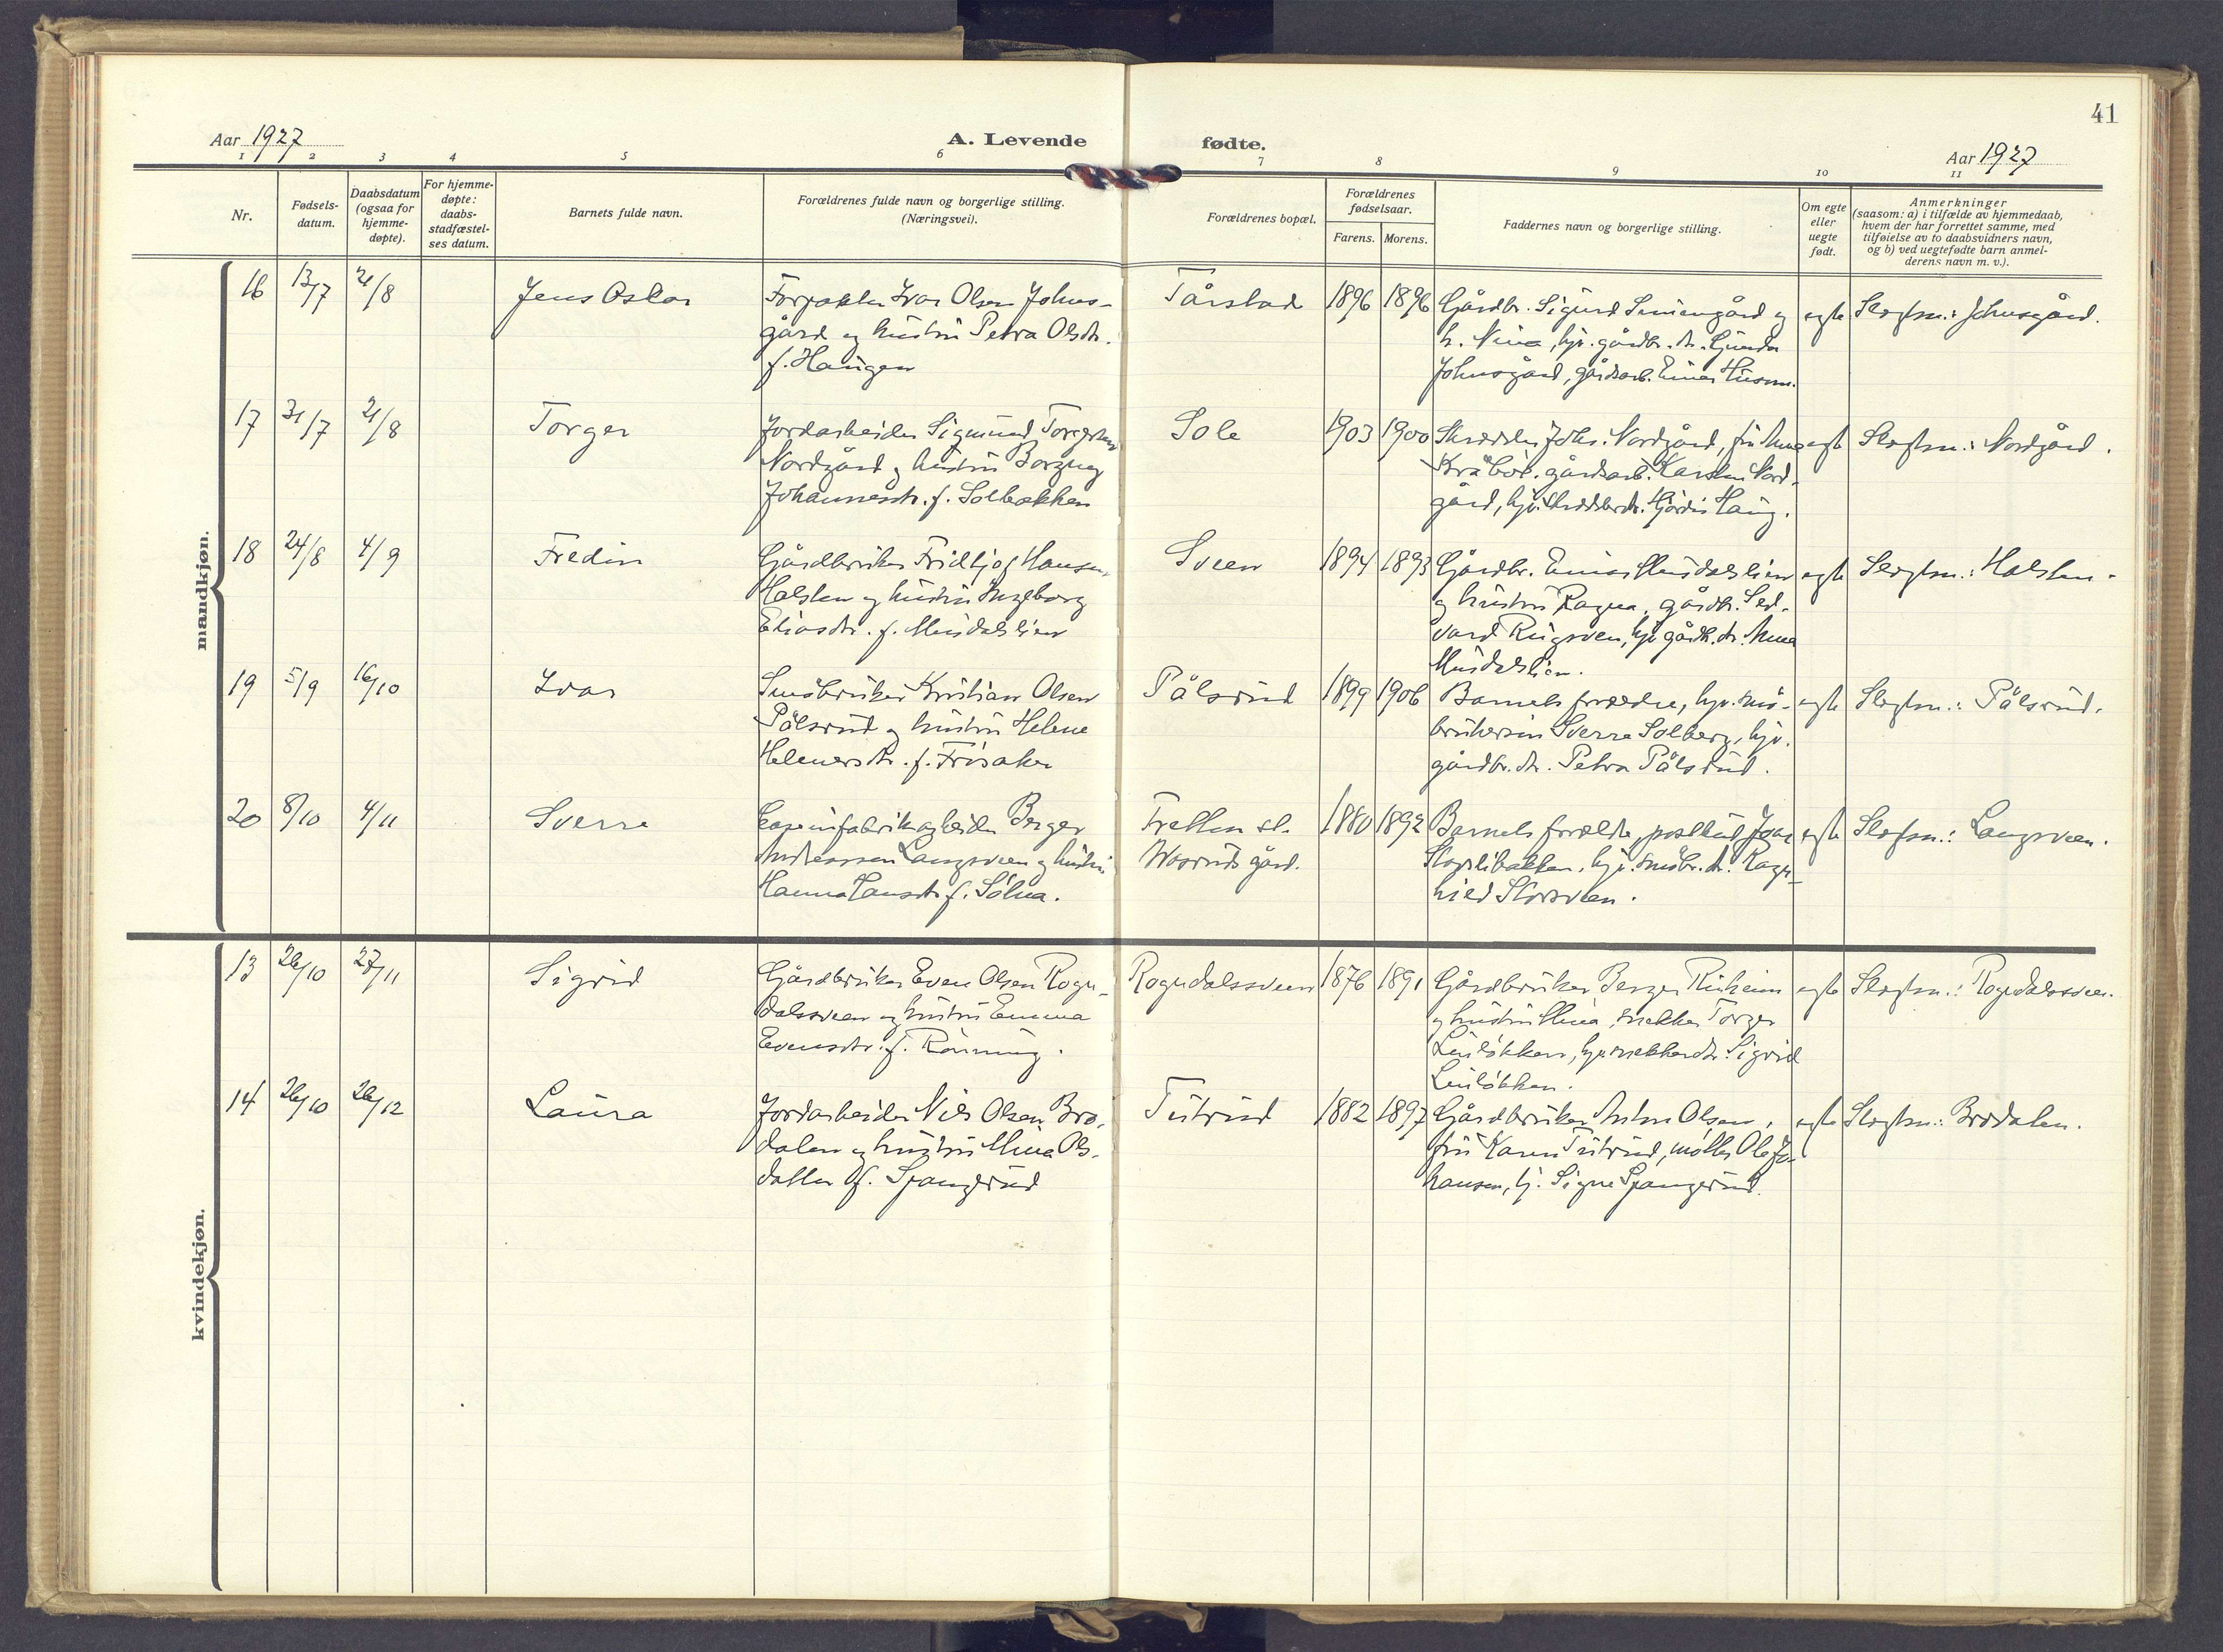 41
Aar 1927
A. Levende fødte.
Aar 1927
1 2 3 4 5 6 7 8 9 10 11
Nr.
Fødsels-
datum.
Daabsdatum
(ogsaa for
hjemme-
døpte).
For hjemme-
døpte:
daabs-
stadfæstel-
ses datum.
Barnets fulde navn.
Forældrenes fulde navn og borgerlige stilling.
(Næringsvei).
Forældrenes bopæl.
Forældrenes
fødselsaar.
Farens. Morens.
Faddernes navn og borgerlige stilling.
Om egte
eller
uegte
født.
Anmerkninger
(saasom: a) i tilfælde av hjemmedaab,
hvem der har forrettet samme, med
tilføielse av to daabsvidners navn,
og b) ved uegtefødte barn anmel-
derens navn m. v.).
mandkjøn.
16 13/7 21/8 Jens Oskar
Forpakter Ivar Olsen Johns-
gård og hustru Petra Olsdtr.
f. Haugen
Tårstad 1896 1896
Gårdbr. Sigurd og
h. gårdbr. dr. Gunda
Johnsgård, gårdsarb. Einar
egte Slegtsn.: Johnsgård.
17 31/7 21/8 Torger
Jordarbeider Sigmund Torgersen
Nordgård og hustru Borzny
Johannesdtr. f. Solbakken
Sole 1903 1900
Skredder Johs. Nordgård, fru Anna
Kråbøl, gårdsarb. Karsten Nord-
gård, hjv. skredderdtr. Hjördis Haug.
egte Slegtsn.: Nordgård.
18 24/8 4/9 Fredin
Gårdbruker Fridtjof Hansen
Halsten og hustru Ingeborg
Eliasdtr. f. Musdalslien
Sveen 1894 1893
Gårdbr. Einar Musdalslien
og hustru Ragna, gårdbr. Sed-
vard Rugsveen, hjv. gårdb. dr. Anna
Musdalslien.
egte Slegtsn.: Halsten.
19 5/9 16/10 Ivar
Småbruker Kristian Olsen
Pålsrud og hustru Helene
Helenersdtr. f. Frisaker
Pålsrud 1899 1906
Barnets forældre, hjv. små-
Sverre Solberg, hjv.
gårdbr. dr. Petra Pålsrud.
egte Slegtsn.: Pålsrud.
20 8/10 4/11 Sverre
Caseinfabrikarbeider Berger
Andreassen Langsveen og hustru
Hanna Hansdtr. f. Sølna.
Fretten st.
gård.
1880 1892
Barnets forældre, Ivar
hjv. småbr. dr. Ragn-
hild Storsveen.
egte Slegtsn.: Langsveen.
kvindekjøn.
13 26/10 27/11 Sigrid
Gårdbruker Even Olsen Rogn-
dalssveen og hustru Emma
Evensdtr. f. Rönning.
Rogndalssveen 1876 1891
Gårdbruker Berger
og hustru snekker Torger
Linløkken, hjv. snekkerdtr. Sigrid
Linløkken.
egte Slegtsn.: Rogndalssveen.
14 26/10 26/12 Laura
Jordarbeider Nils Olsen Bro-
dalen og hustru Mina Ols-
datter f. Spangerud
Tutrud 1882 1897
Gårdbruker Anton Olsen,
fru Karen Tutrud, møller Ole Jo-
hansen, hj. Signe Spangerud.
egte Slegtsn.: Brodalen.